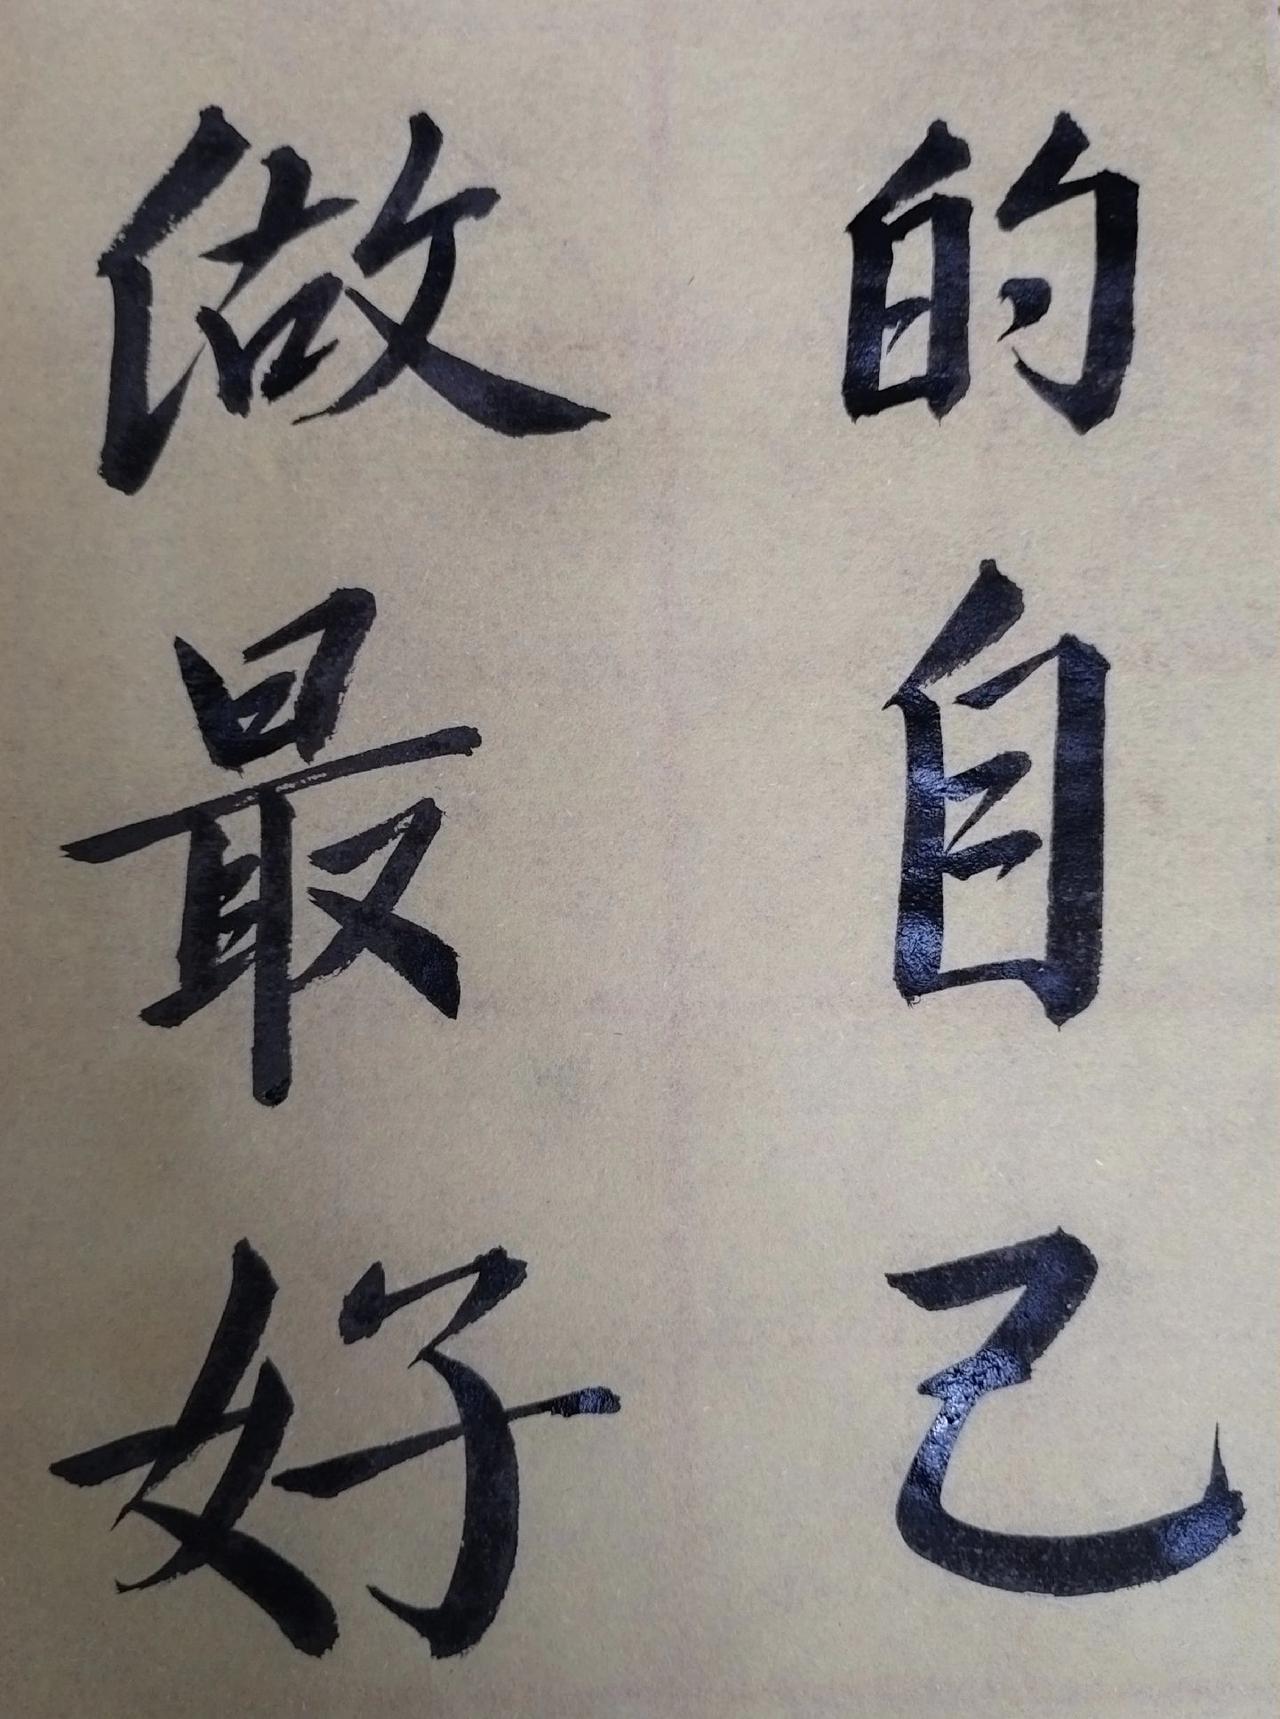 做最好
的自己